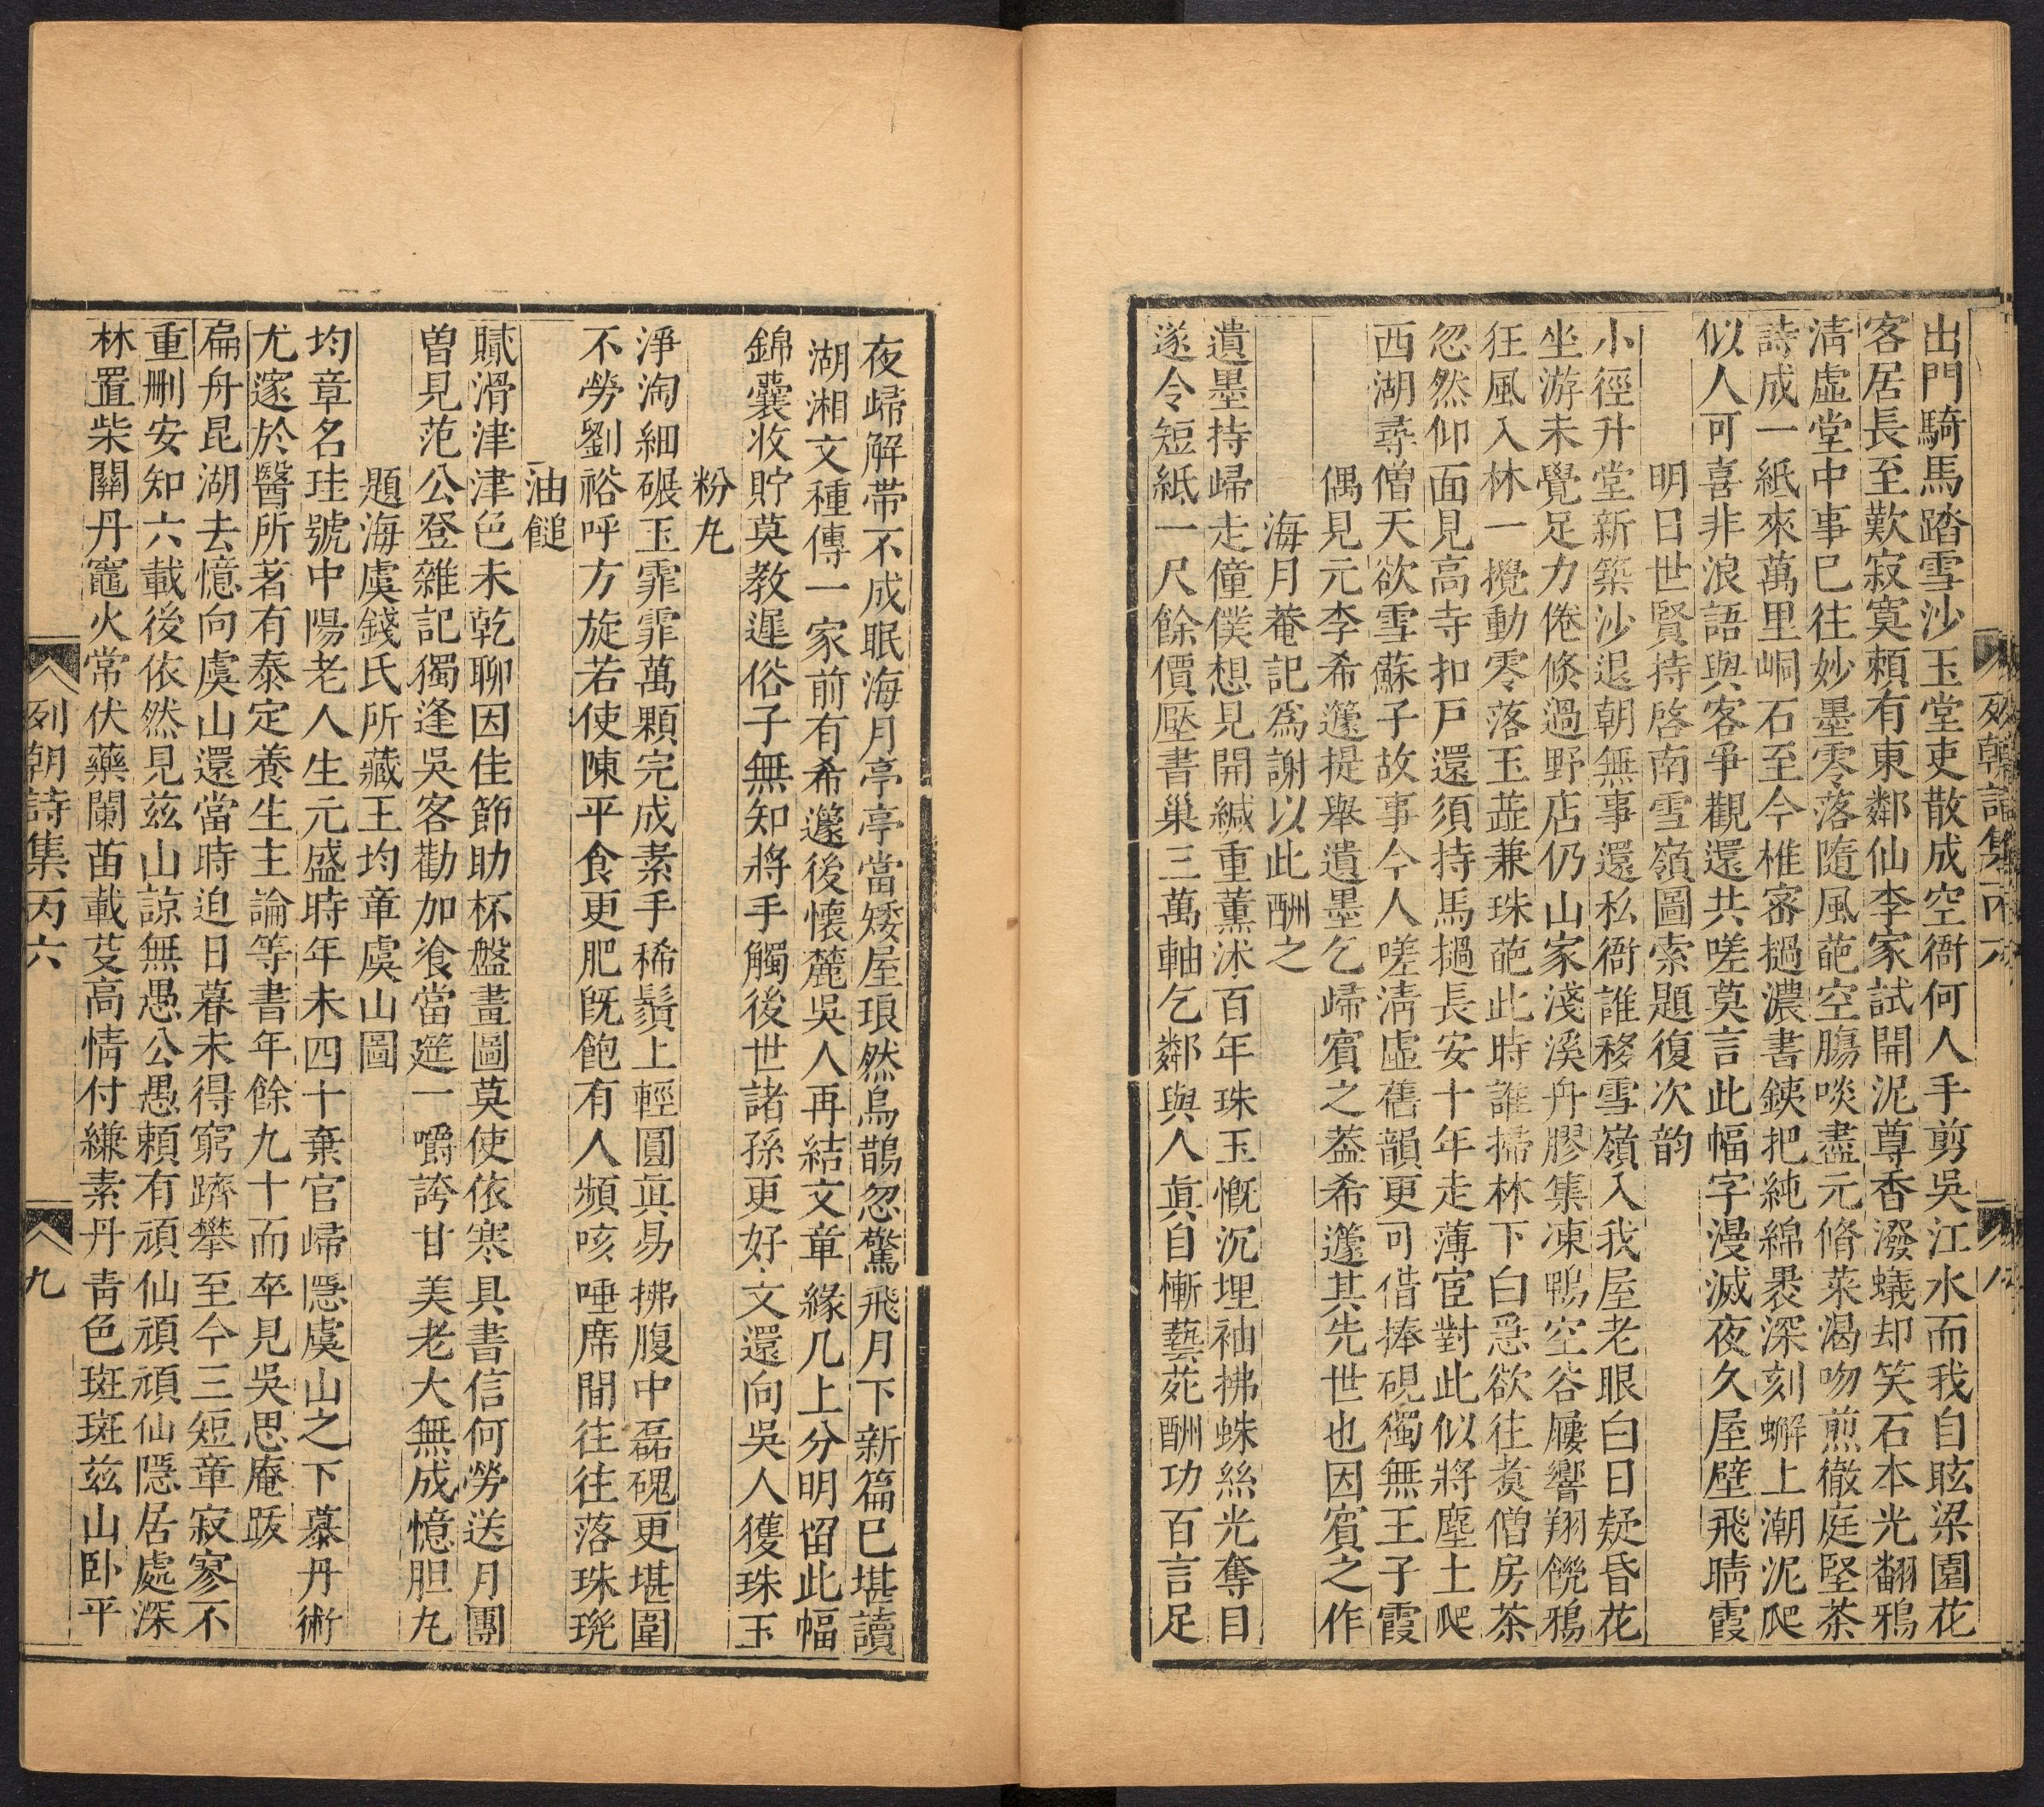 列朝詩集丙六 八
出門騎馬踏雪沙玉堂吏散成空衙何人手剪吳江水而我自眩梁園花
客居長至歎寂寞頼有東鄰仙李家試開泥尊香潑蟻却笑石本光翻鴉
淸虛堂中事已往妙墨零落隨風葩空膓啖盡元脩菜渴吻煎徹庭堅茶
詩成一紙來萬里峒石至今椎窑撾濃書鋏把純綿裹深刻蠏上潮泥爬
似人可喜非浪語與客爭觀還共嗟莫言此幅字漫滅夜久屋壁飛晴霞
明日世賢持啓南雪嶺圖索題復次韵
小徑升堂新築沙退朝無事還私衙誰移雪嶺入我屋老眼白日疑昏花
坐游未覺足力倦倐過野店仍山家淺溪舟膠集凍鴨空谷屧響翔饑鴉
狂風入林一攪動零落玉蕋兼珠葩此時誰掃林下白惡欲往煑僧房茶
忽然仰面見高寺扣戸還須持馬撾長安十年走薄宦對此似將塵土爬
西湖尋僧天欲雪蘇子故事今人嗟淸虛舊韻更可借捧硯獨無王子霞
偶見元李希蘧提舉遺墨乞歸賓之葢希蘧其先世也因賓之作
海月菴記為謝以此酬之
遺墨持歸走僮僕想見開緘重薰沐百年珠玉慨沉埋袖拂蛛絲光奪目
遂令短紙一尺餘價壓書巢三萬軸乞鄰與人真自慚藝苑酬功百言足
夜歸解帶不成眠海月亭亭當矮屋琅然鳥鵲忽驚飛月下新篇已堪讀
湖湘文種傳一家前有希蘧後懷麓吳人再結文章緣几上分明留此幅
錦囊收貯莫教遲俗子無知將手觸後世諸孫更好文還向吳人獲珠玉
粉丸
淨淘細碾玉霏霏萬顆完成素手稀鬚上輕圓眞易拂腹中磊磈更堪圍
不勞劉裕呼方旋若使陳平食更肥旣飽有人頻咳唾席間往往落珠璣
油䭔
腻滑津津色未乾聊因佳節助杯盤畫圖莫使依寒具書信何勞送月團
曾見范公登雜記獨逢吳客勸加飡當筵一嚼誇甘美老大無成憶胆丸
題海虞錢氏所藏王均章虞山圖
均章名珪號中陽老人生元盛時年未四十棄官歸隱虞山之下慕丹術
尤邃於醫所著有泰定養生主論等書年餘九十而卒見吳思庵䟦
扁舟昆湖去憶向虞山還當時迫日暮未得窮躋攀至今三短章寂寥不
重刪安知六載後依然見兹山諒無愚公愚頼有頑仙頑頑仙隱居處深
林置柴關丹竈火常伏藥闌苗載芟高情付縑素丹靑色斑斑兹山卧平
列朝詩集丙六 九